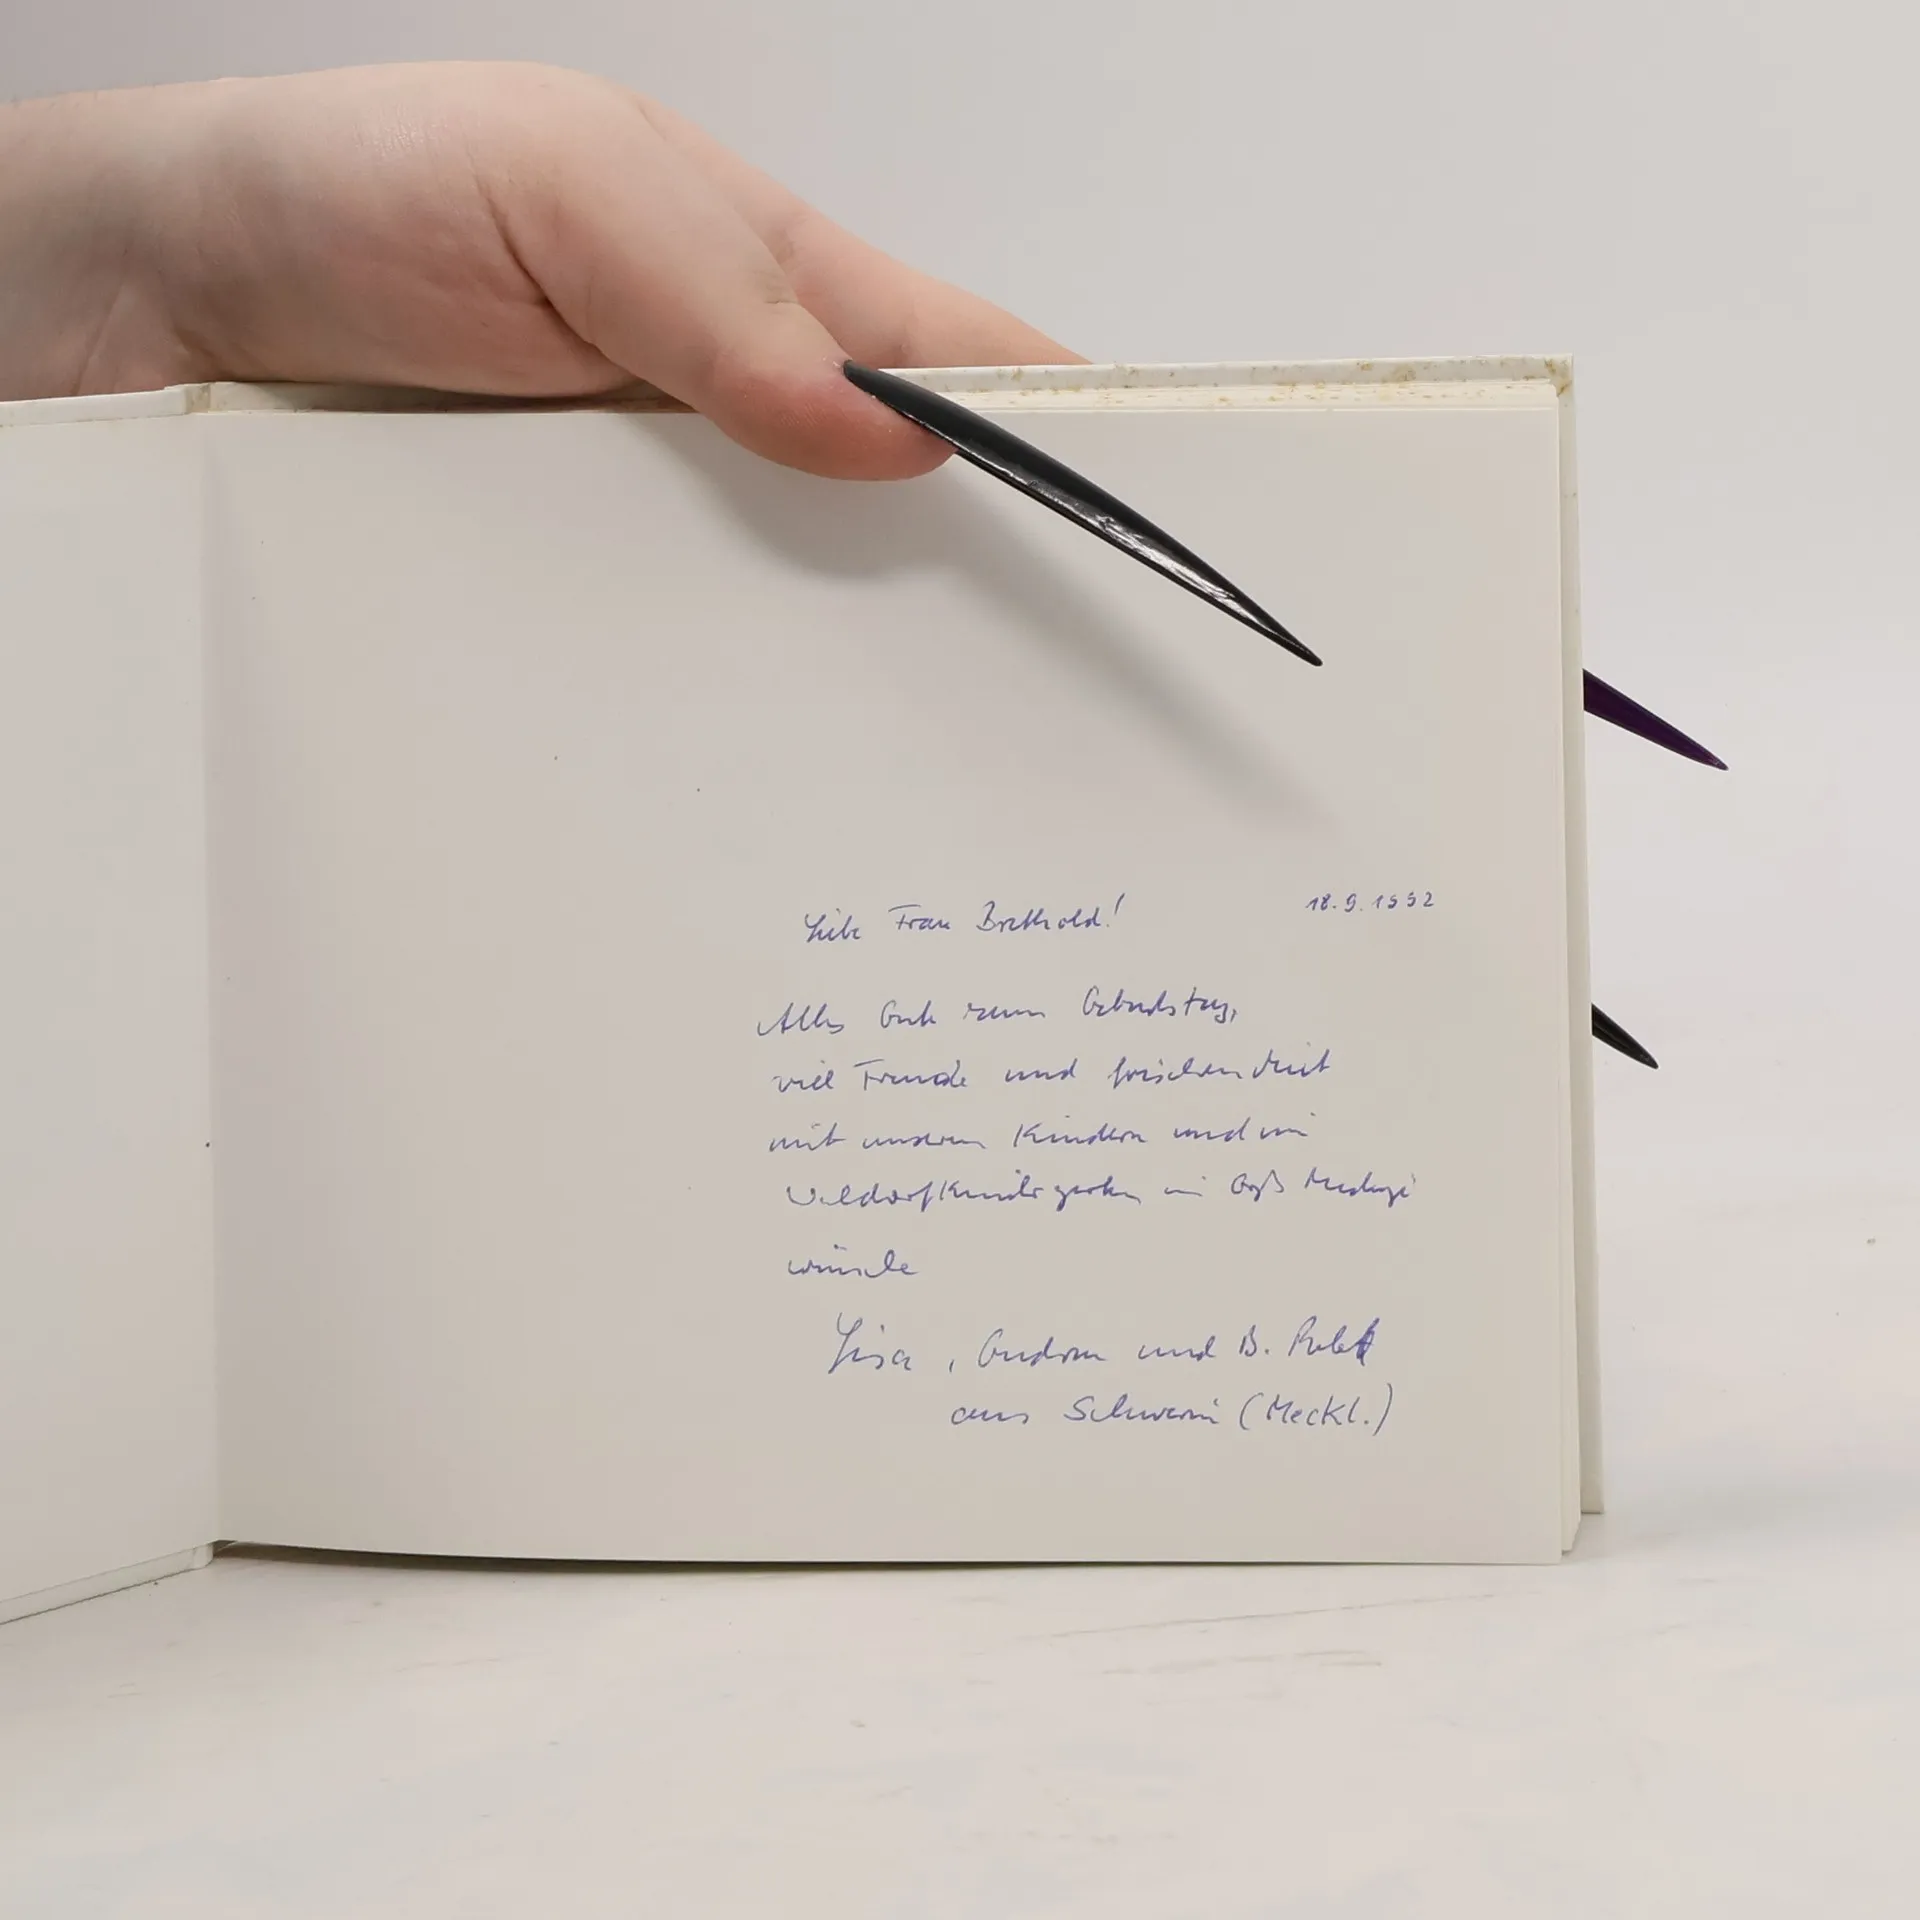 Liebe Frau Brethold! 18.9.1992
Alles Gute zum Geburtstag,
viel Freude und frischen Mut
mit unseren Kindern und im
Waldorfkindergarten in Groß Medewege
wünschen
Lisa, Gudrun und B.
aus Schwerin (Meckl.)